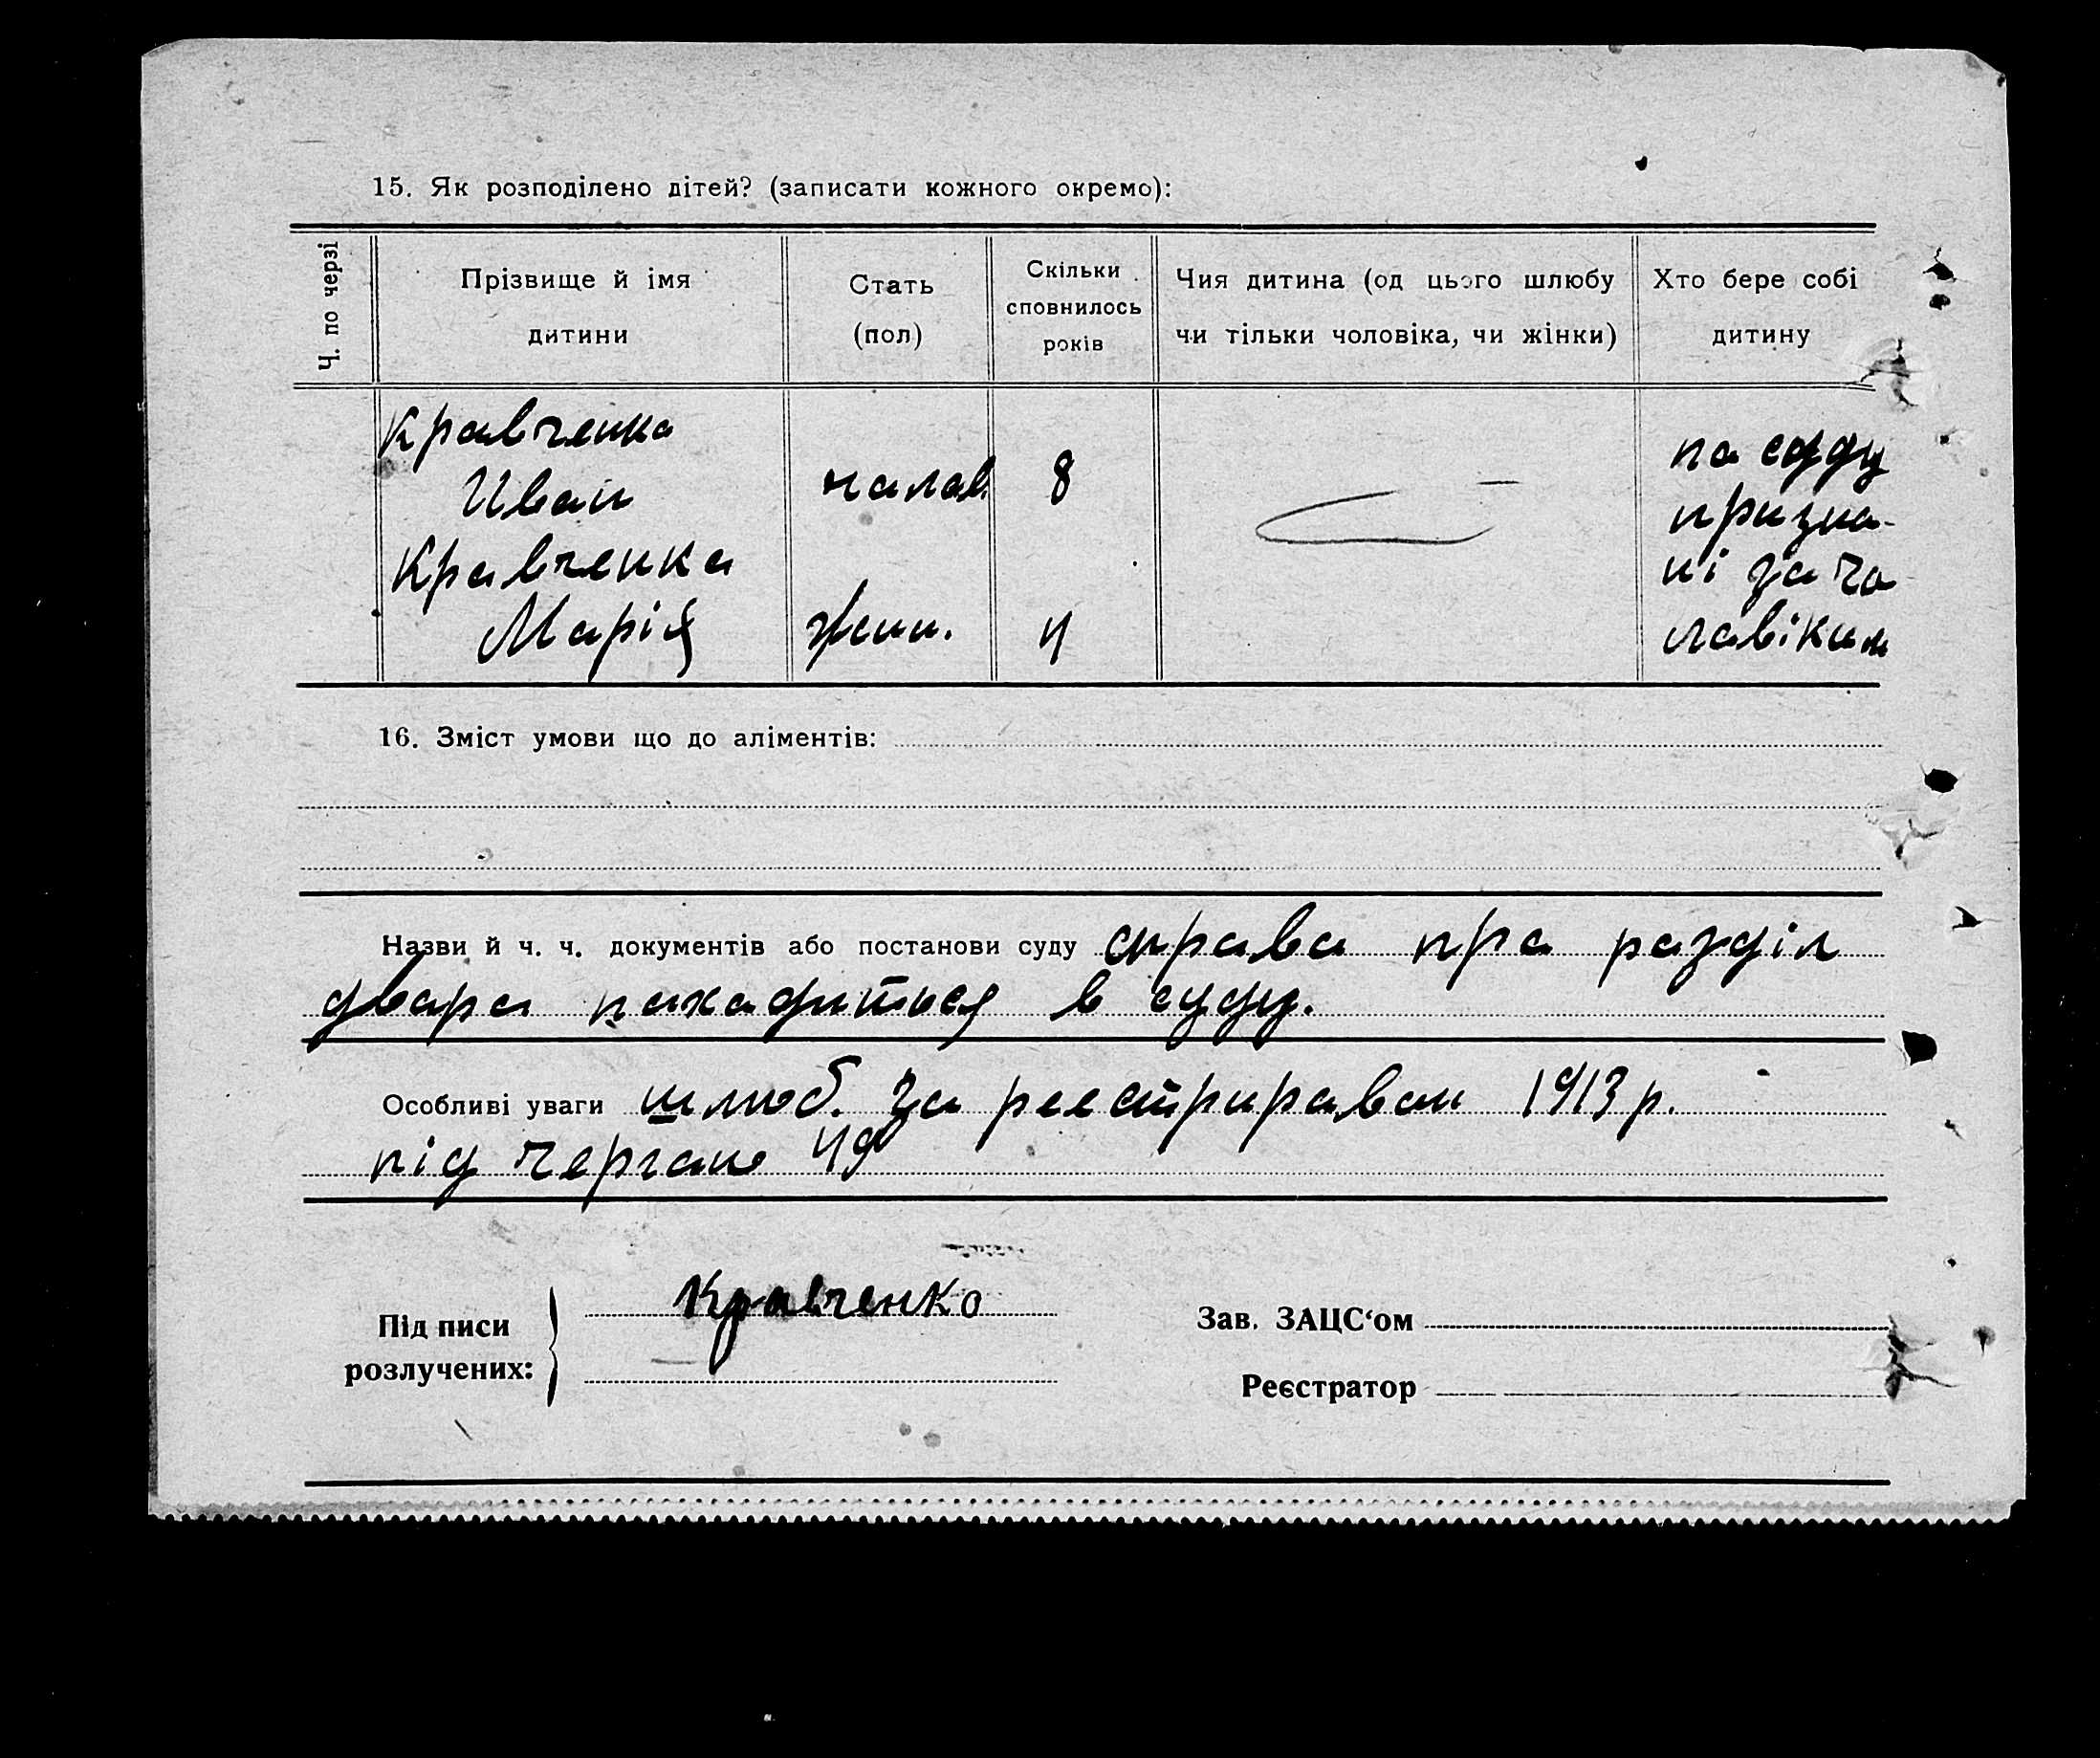 15. Як розподілено дітей? (записати кожного окремо):
Ч. по черзі
Прізвище й імя дитини
Стать (пол)
Скільки сповнилось років
Чия дитина (од цього шлюбу чи тільки чоловіка, чи жінки)
Хто бере собі дитину
Кравченко
Иван
чалав.
8
Кравченко
Марія
женн.
4
по суду
призна-
ні за чо
ловіком
16. Зміст умови що до аліментів:
Назви й ч. ч. документів або постанови суду справа про розділ
двора находиться в суду.
Особливі уваги шлюб. за реестрирован 1913 р.
під чергою 49
Під писи
розлучених:
Кравченко
Зав. ЗАЦС‘ом
Реєстратор